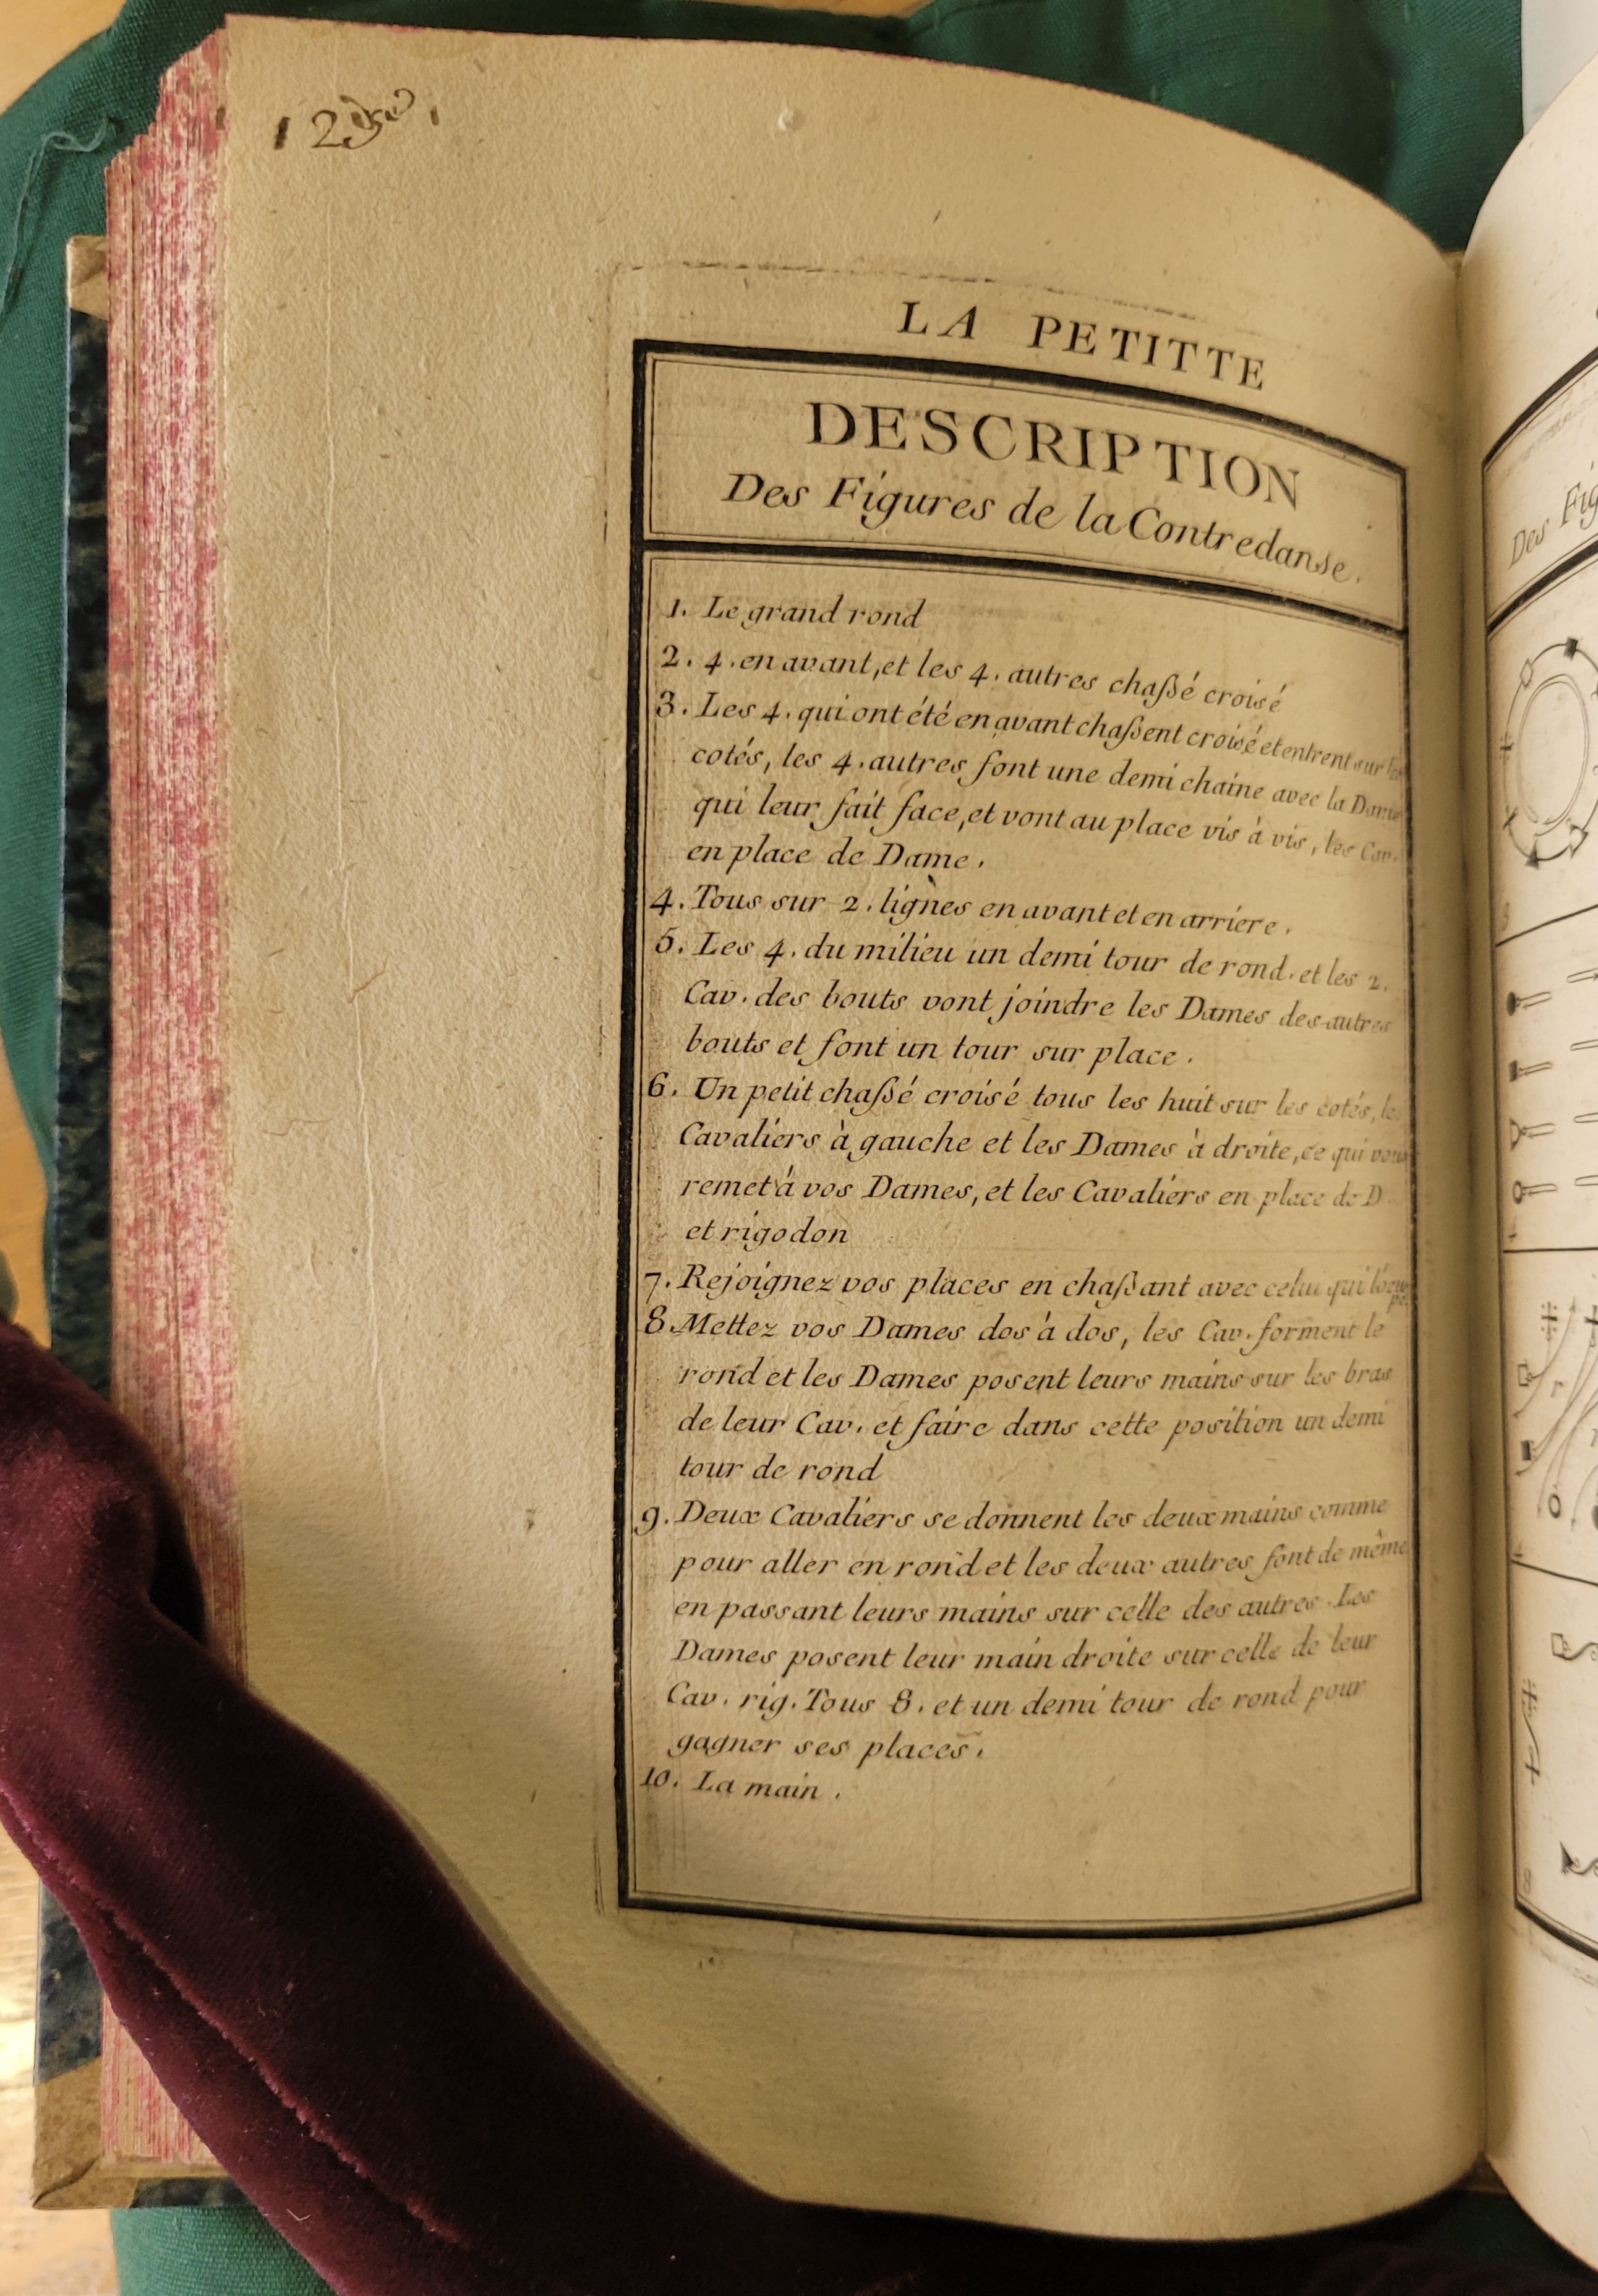 LA PETITTE
DESCRIPTION
Des Figures de la Contredanse.
1. Le grand rond
2. 4. en avant, et les 4. autres chaßé croisé
3. Les 4. qui ont été en avant chaßent croisé et entrent sur les
cotés, les 4. autres font une demi chaine avec la Dame
qui leur fait face, et vont au place vis à vis, les Cav.
en place de Dame.
4. Tous sur 2. lignes en avant et en arriere.
5. Les 4. du milieu un demi tour de rond. et les 2.
Cav. des bouts vont joindre les Dames des autres
bouts et font un tour sur place.
6. Un petit chaßé croisé tous les huit sur les cotés, les
Cavaliers à gauche et les Dames à droite, ce qui vous
remet à vos Dames, et les Cavaliers en place de D
et rigodon
7. Rejoignez vos places en chaßant avec celui qui
8. Mettez vos Dames dos à dos, les Cav. forment le
rond et les Dames posent leurs mains sur les bras
de leur Cav. et faire dans cette position un demi
tour de rond
9. Deux Cavaliers se donnent les deux mains comme
pour aller en rond et les deux autres font de même
en passant leurs mains sur celle des autres. Les
Dames posent leur main droite sur celle de leur
Cav. rig. Tous 8. et un demi tour de rond pour
gagner ses places.
10. La main.
Des Fig